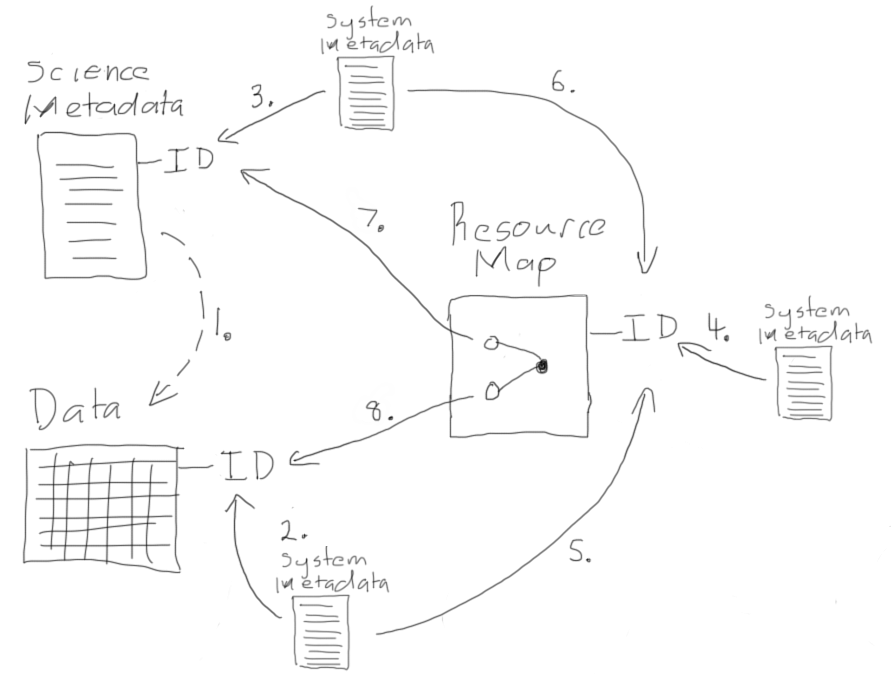 System
Metadata
6.
Science
Metadata
3.
ID
7.
Resource
Map
ID
4.
System
Metadata
1.
Data
8.
ID
2.
System
Metadata
5.